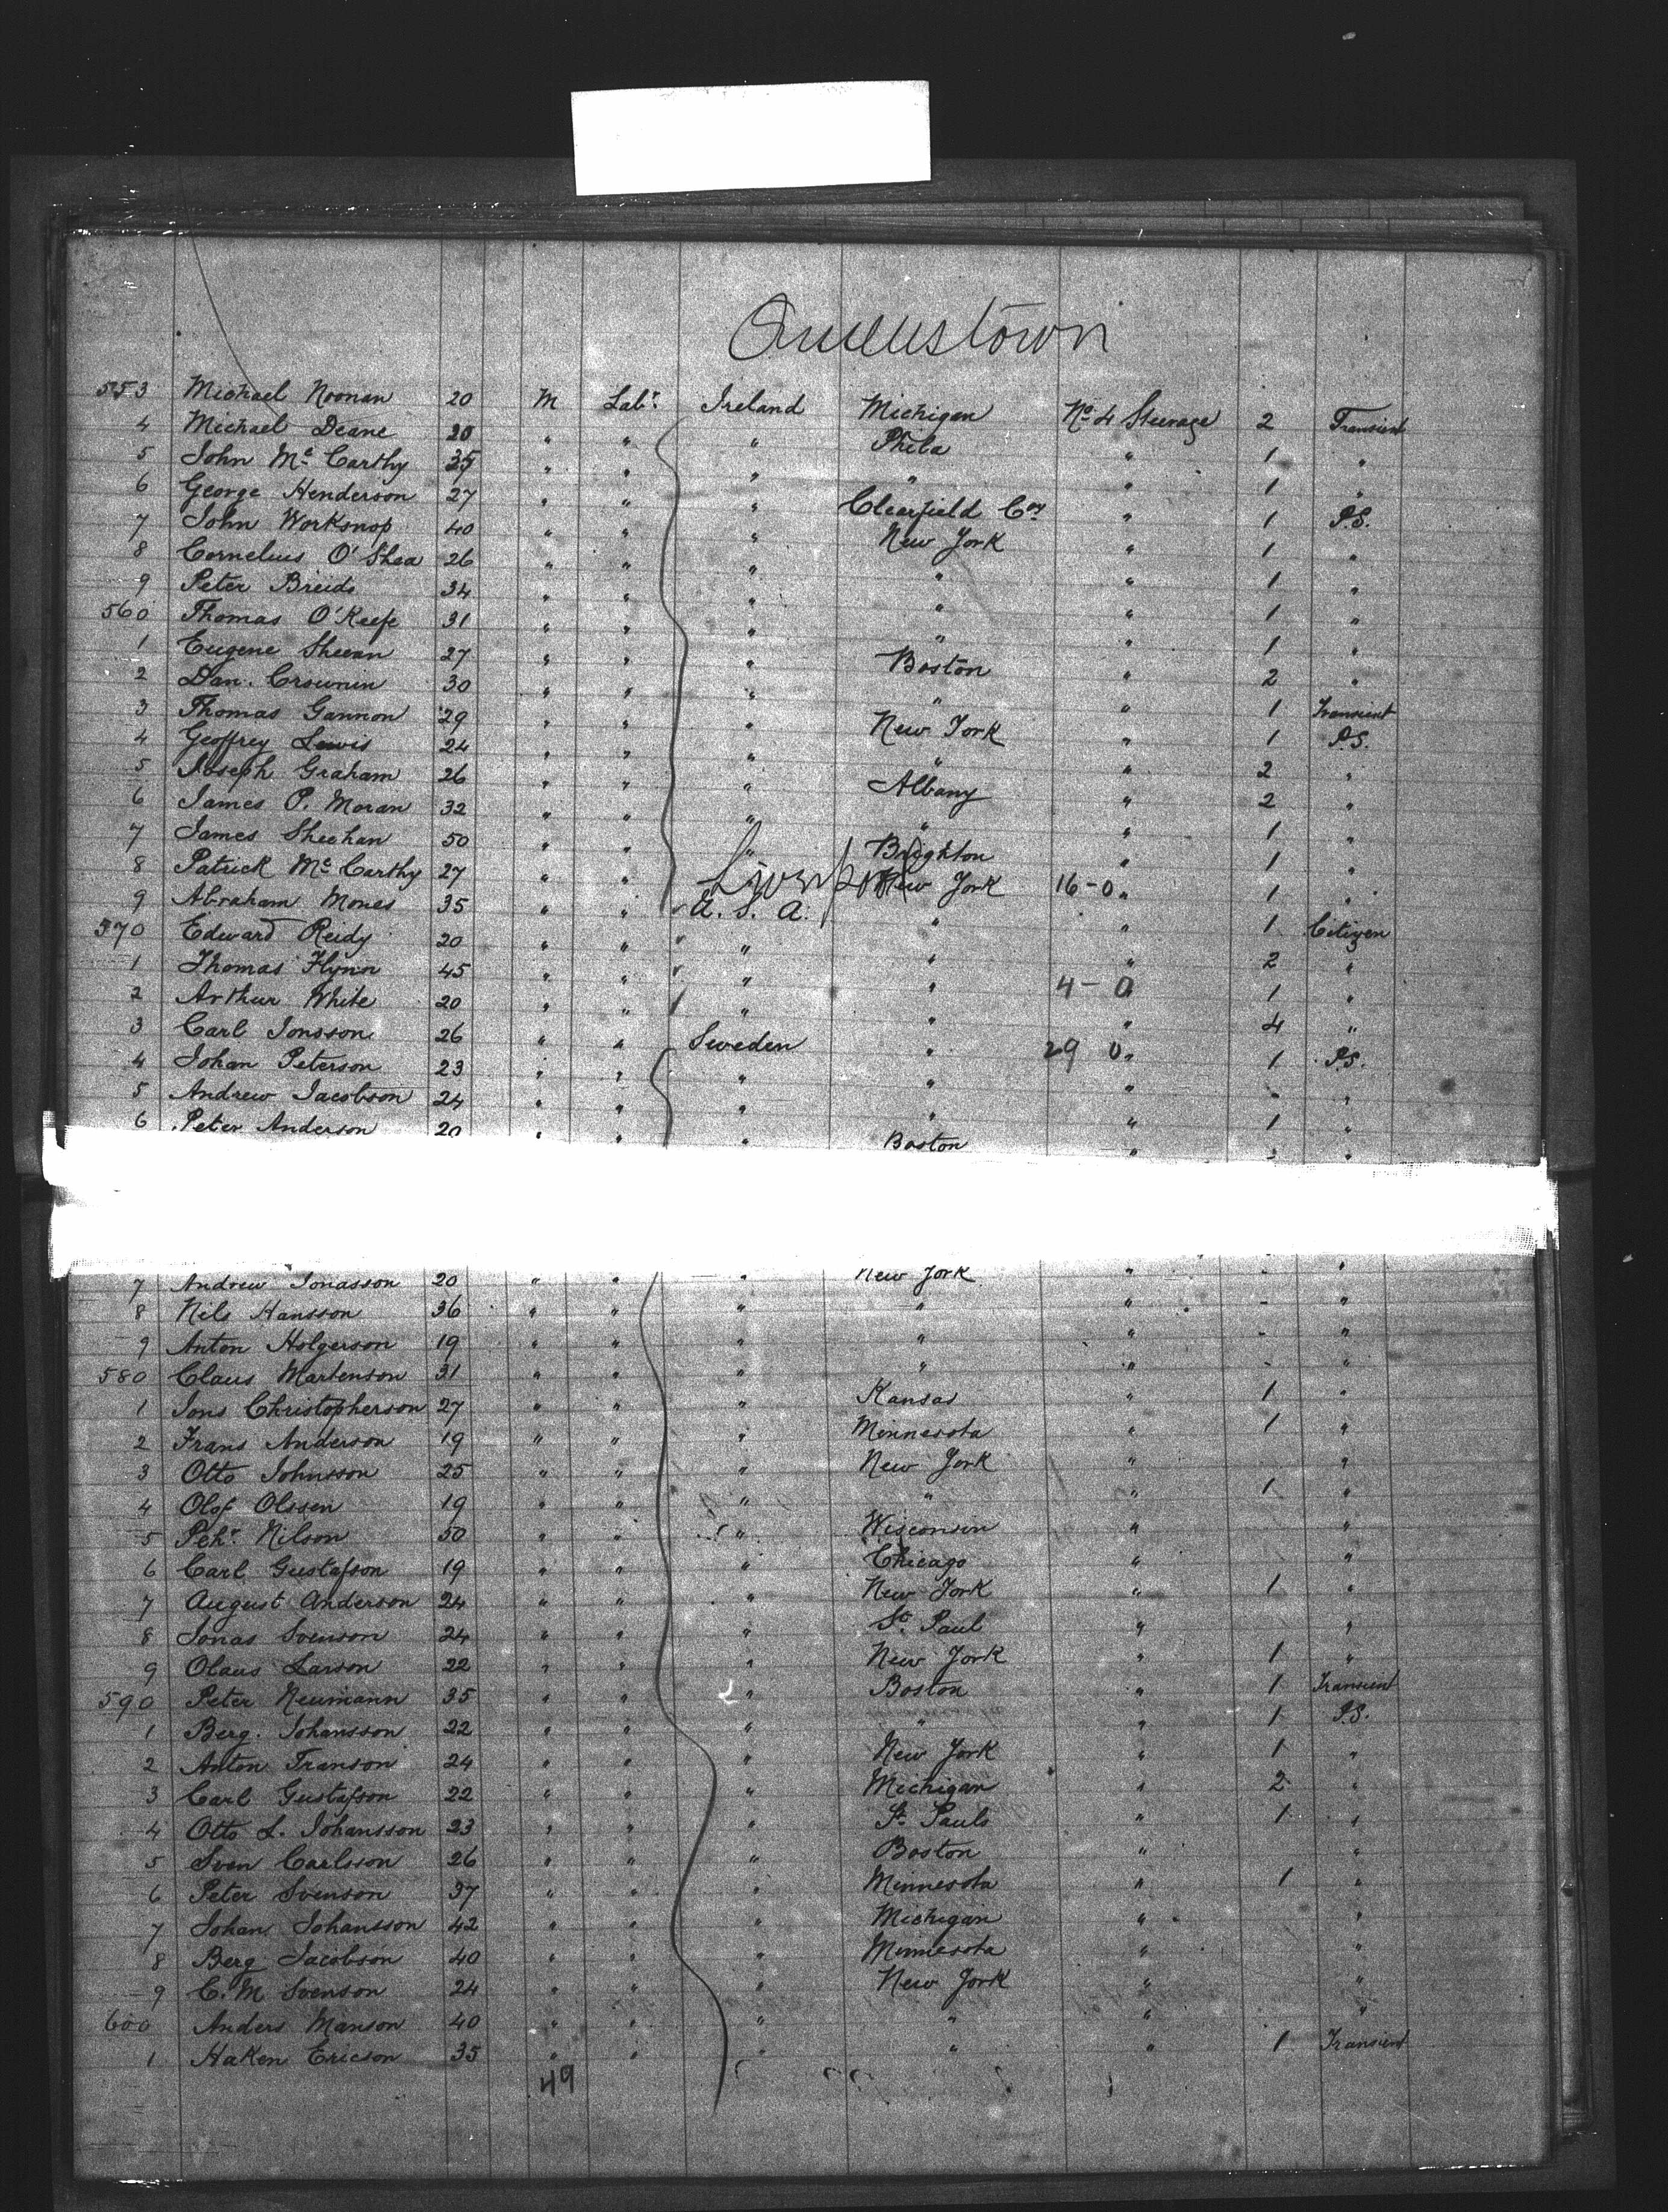 Queenstown
553 Michael Noonan 20 M Labr. Ireland Michigan No 4 Steerage 2 Transient
4 Michael Deane 20 " " " Phila " 1 "
5 John Mc Carthy 35 " " " " " 1 "
6 George Henderson 27 " " " Clearfield Coy " 1 P.S.
7 John Worksnop 40 " " " New York " 1 "
8 Cornelius O'Shea 26 " " " " " 1 "
9 Peter Breids 34 " " " " " 1 "
560 Thomas O'Keefe 31 " " " " " 1 "
1 Eugene Sheean 27 " " " Boston " 2 "
2 Dan. Crownin 30 " " " " " 1 Transient
3 Thomas Gannon 29 " " " New York " 1 P.S.
4 Geoffrey Lewis 24 " " " " " 2 "
5 Joseph Graham 26 " " " Albany " 2 "
6 James P. Moran 32 " " " " " 1 "
7 James Sheehan 50 " " " Brighton " 1 "
8 Patrick Mc Carthy 27 " " Liverpool New York 16-0 " 1 "
9 Abraham Mones 35 " " U.S.A. " " 1 Citizen
570 Edward Reidy 20 " " " " " 2 "
1 Thomas Flynn 45 " " " " 4-0 1 "
2 Arthur White 20 " " " " " 4 "
3 Carl Jonsson 26 " " Sweden " 29 0 " 1 P.S.
4 Johan Peterson 23 " " " " " - "
5 Andrew Jacobson 24 " " " " " 1 "
6 Peter Anderson 20 " " " Boston " - "
7 Andrew Jonasson 20 " " " New York " - "
8 Nils Hansson 36 " " " " " - "
9 Anton Holgerson 19 " " " " " - "
580 Claus Martenson 31 " " " " " - "
1 Jons Christopherson 27 " " " Kansas " 1 "
2 Frans Anderson 19 " " " Minnesota " 1 "
3 Otto Johnsson 25 " " " New York " "
4 Olof Olssen 19 " " " " " 1 "
5 Pehr. Nilson 50 " " " Wisconsin " "
6 Carl Gustafson 19 " " " Chicago " "
7 August Anderson 24 " " " New York " 1 "
8 Jonas Svenson 24 " " " St. Paul " "
9 Olaus Larson 22 " " " New York " 1 "
590 Peter Neumann 35 " " " Boston " 1 Transient
1 Berg. Johansson 22 " " " " " 1 P.S.
2 Anton Franson 24 " " " New York " 1 "
3 Carl Gustafson 22 " " " Michigan " 2 "
4 Otto L. Johansson 23 " " " St. Pauls " 1 "
5 Sven Carlsson 26 " " " Boston " "
6 Peter Svenson 37 " " " Minnesota " 1 "
7 Johan Johansson 42 " " " Michigan " "
8 Berg Jacobson 40 " " " Minnesota " "
9 C. M. Svenson 24 " " " New York " "
600 Anders Manson 40 " " " " " "
1 Haken Ericson 35 " " " " " 1 Transient
49